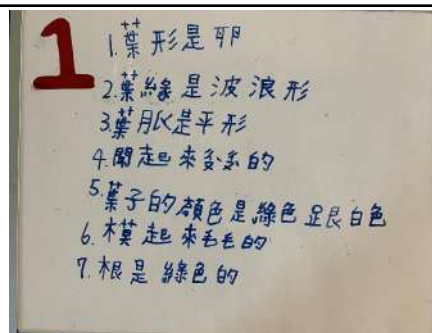 1
1.葉形是卵
2.葉緣是波浪形
3.葉脈是平形
4.聞起來的
5.葉子的顏色是綠色跟白色
6.摸起來毛毛的
7.根是綠色的